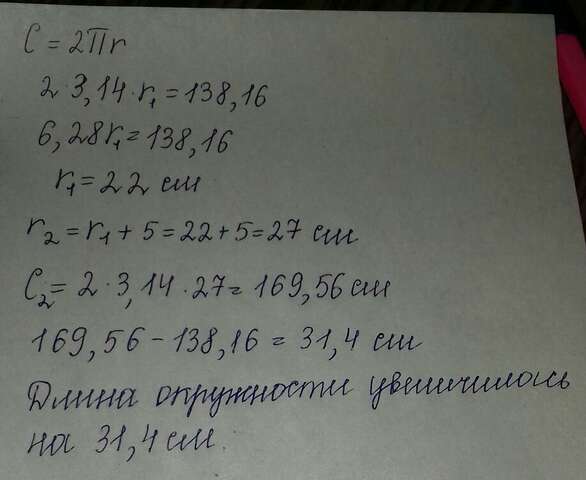 C = 2Πr
2·3,14·r₁ = 138,16
6,28r₁ = 138,16
r₁ = 22 см
r₂ = r₁ + 5 = 22 + 5 = 27 см
C₂ = 2·3,14·27 = 169,56 см
169,56 - 138,16 = 31,4 см
Длина окружности увеличилось
на 31,4 см.